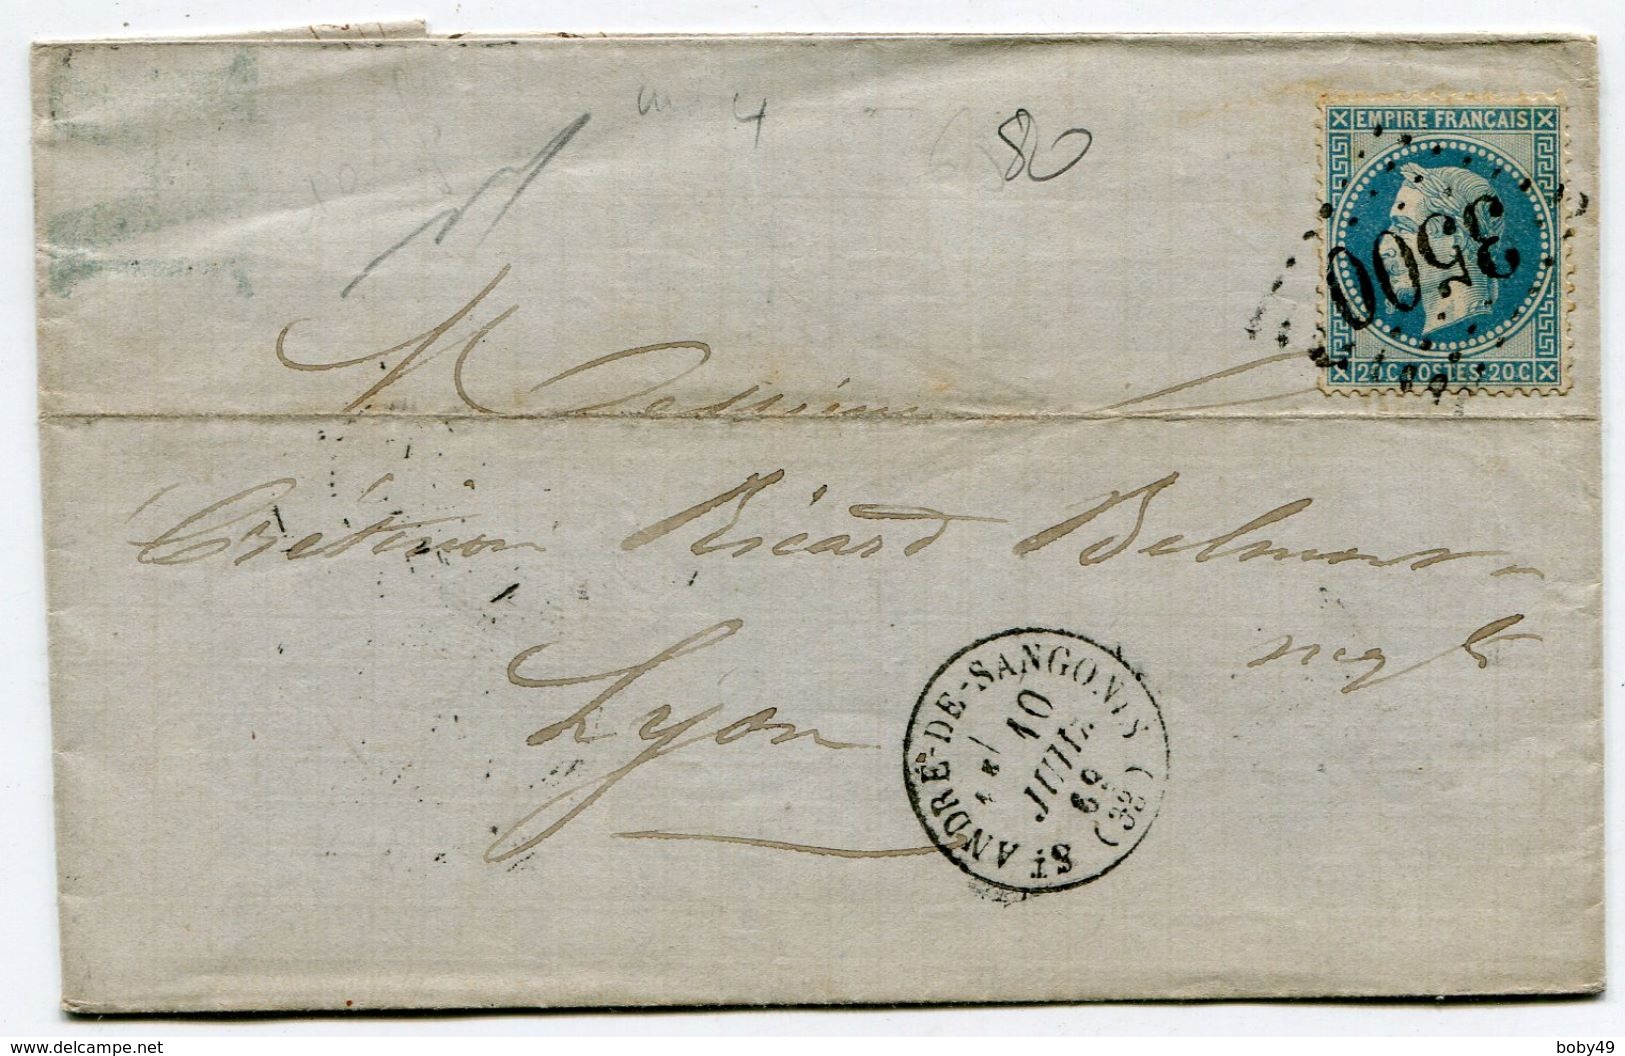 4
80
EMPIRE FRANÇAIS
3500
20 C POSTES 20 C
Messieurs
Crétinon Ricard Belmont
Lyon
ST ANDRÉ-DE-SANGONIS (33)
10
JUIL
69
delcampe.net
boby49